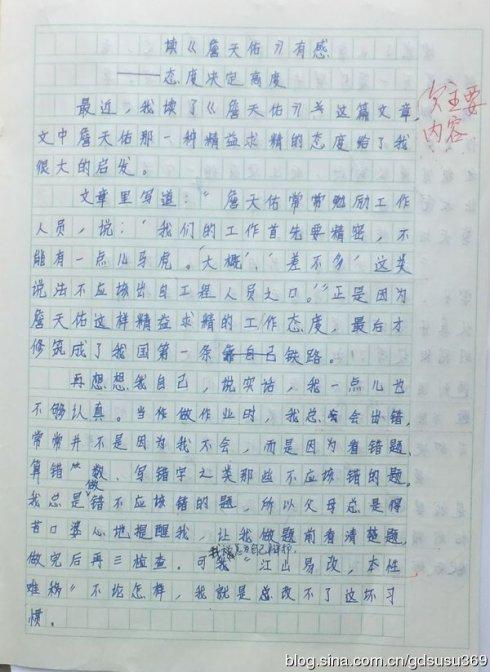 读《詹天佑》有感
——态度决定高度
最近，我读了《詹天佑》这篇文章，
文中詹天佑那一种精益求精的态度给了我
很大的启发。
文章里写道：“詹天佑常常勉励工作
人员，说：‘我们的工作首先要精密，不
能有一点儿马虎。‘大概’、‘差不多’这类
说法不应该出自工程人员之口。’”正是因为
詹天佑这样精益求精的工作态度，最后才
修筑成了我国第一条铁路。
再想想我自己，说实话，我一点儿也
不够认真。当作做作业时，我总会出错，
常常并不是因为我不会，而是因为看错题、
算错数、写错字之类那些不应该错的题。
我总是做错不应该错的题，所以父母总是得
苦口婆心地提醒我，让我做题前看清楚题，
做完后再三检查。可我“江山易改，本性
难移”不论怎样，我就是总改不了这坏习
惯。
欠主要
内容
blog.sina.com.cn/gdsusu369